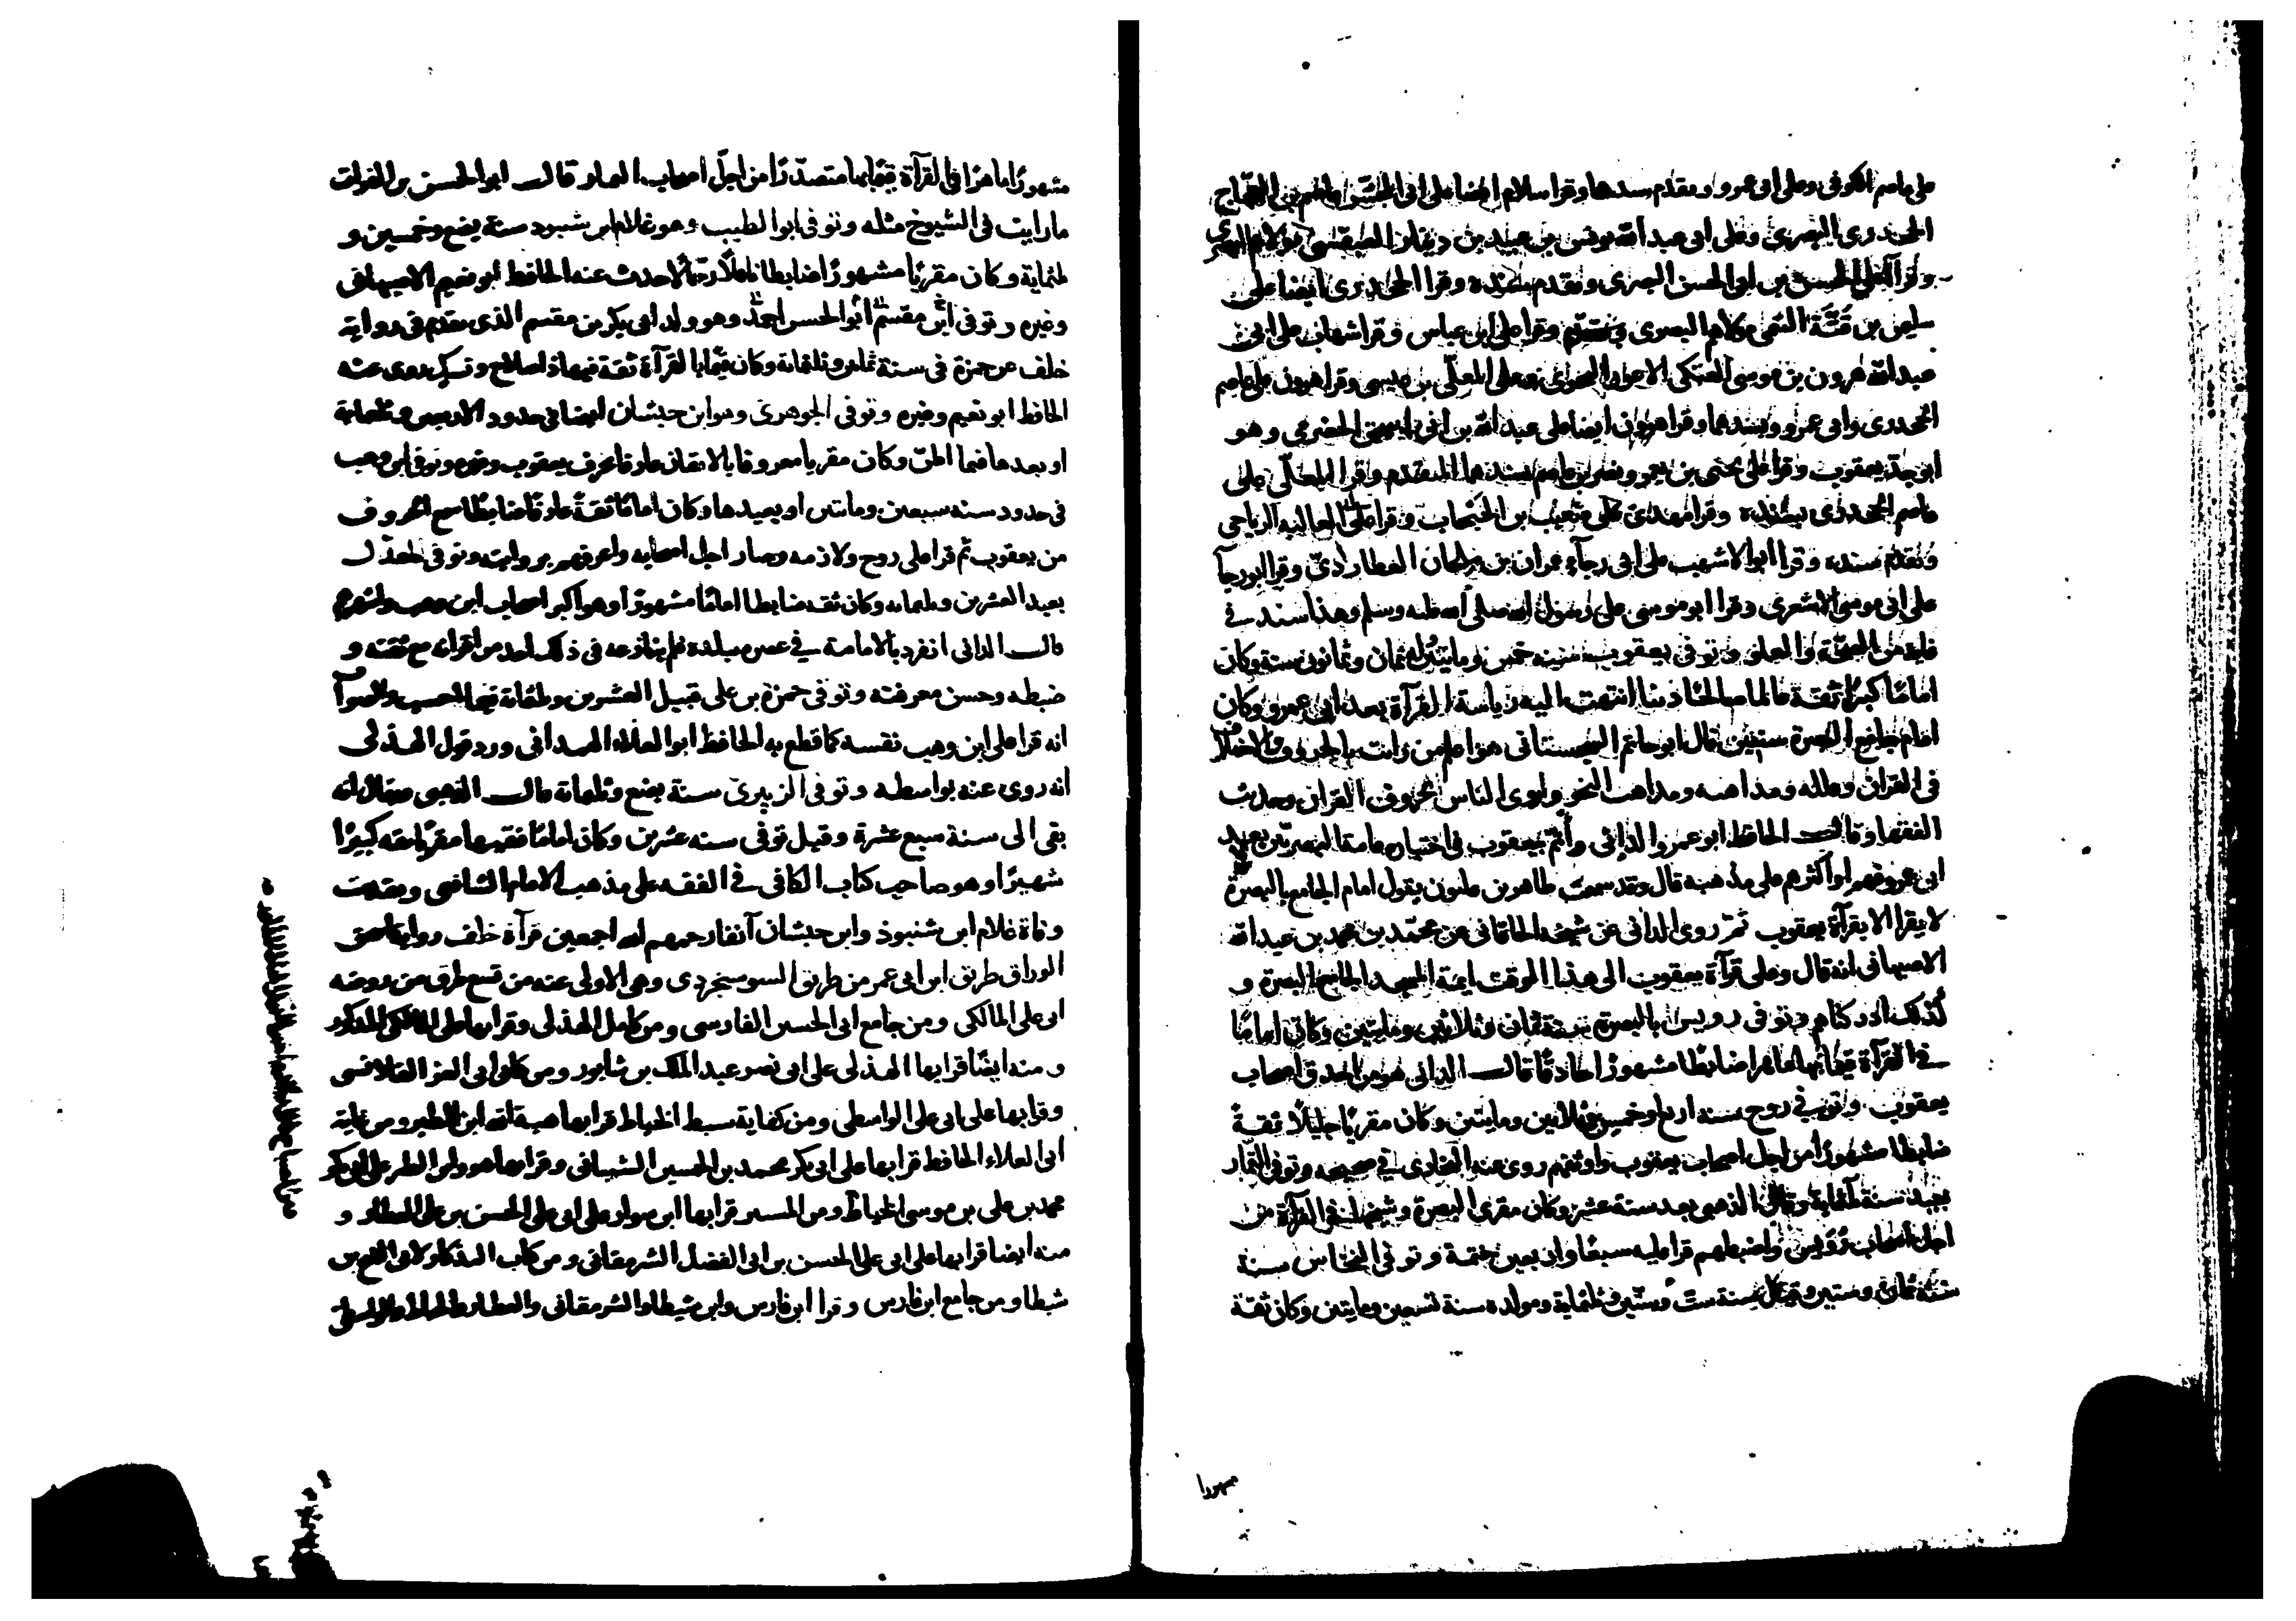 على عاصم الكوفى وعلى ابى عمرو وتقدم سندهما وقرا سلام ايضا على ابى المجشر عاصم بن العجاج
الجحدرى البصرى وعلى ابى عبد الله يونس بن عبيد بن دينار العبقسى مولاهم البصرى
وقرآ على الحسن بن ابى الحسن البصرى وتقدم سنده وقرا الجحدرى ايضا على
سليمن بن قتة التيمى مولاهم البصرى وقرا على ابن عباس وقرا شهاب على ابى
عبد الله هرون بن موسى العتكى الاعور النحوى وعلى المعلى بن عيسى وقرا هرون على عاصم
الجحدرى وابى عمرو بسندهما وقرا هرون ايضا على عبد الله بن ابى اسحق الحضرمى وهو
ابو جد يعقوب وقرا على يحيى بن يعمر ونصر بن عاصم بسندهما المتقدم وقرا المعلى على
عاصم الجحدرى بسنده وقرا مهدى على شعيب بن الحبحاب وقرا على ابى العالية الرياحى
وتقدم سنده وقرا ابو الاشهب على ابى رجآء عمران بن ملحان العطاردى وقرا ابو رجآ
على ابى موسى الاشعرى وقرا ابو موسى على رسول الله صلى الله عليه وسلم وهذا سند فى
غاية من الصحة والعلو وتوفى يعقوب سنة خمس ومايتين وله ثمان وثمانون سنة وكان
اماما كبيرا ثقة عالما صالحا دينا انتهت اليه رياسة القرآة بعد ابى عمرو وكان
امام جامع البصرة سنين قال ابو حاتم السجستانى هو اعلم من رايت بالحروف والاختلاف
فى القران وعلله ومذاهبه ومذاهب النحو واروى الناس لحروف القران وحديث
الفقها وقال الحافظ ابو عمرو الدانى وأتم بيعقوب فى اختياره عامة البصريين بعد
ابى عمرو فهم او اكثرهم على مذهبه قال وقد سمعت طاهر بن غلبون يقول امام الجامع بالبصرة
لا يقرا الا بقرآة يعقوب ثم روى الدانى عن شيخه الخاقانى عن محمد بن محمد بن عبد الله
الاصبهانى انه قال وعلى قرآة يعقوب الى هذا الوقت ايمة المسجد الجامع بالبصرة و
كذلك ادركناهم وتوفى رويس بالبصرة سنة ثمان وثلاثين ومايتين وكان اماما
فى القرآة قيما بها ماهرا ضابطا مشهورا حاذقا قال الدانى هو من احذق اصحاب
يعقوب وتوفى روح سنة اربع او خمس وثلاثين ومايتين وكان مقريا جليلا ثقة
ضابطا مشهورا من اجل اصحاب يعقوب واوثقهم روى عنه البخارى فى صحيحه وتوفى التمار
بعيد سنة ثلثماية وقال الذهبى بعد سنة عشر وكان مقرى البصرة وشيخها فى القرآة من
اجل اصحاب رويس واضبطهم قرا عليه سبعا واربعين ختمة وتوفى النخاس سنة
ثمان وستين وقيل سنة ست وستين وثلثماية ومولده سنة تسعين ومايتين وكان ثقة
مشهورا
مشهورا ماهرا فى القرآة قيما بها متصدرا من اجل اصحاب التمار قال ابو الحسن بن الفرات
ما رايت فى الشيوخ مثله وتوفى ابو الطيب وهو غلام ابن شنبوذ سنة بضع وخمسين و
ثلثماية وكان مقريا مشهورا ضابطا ناقلا رحالا حدث عنه الحافظ ابو نعيم الاصبهانى
وغيره وتوفى ابن مقسم ابو الحسن احمد وهو ولد ابى بكر بن مقسم الذى تقدم فى رواية
خلف عن حمزة فى سنة ثمانين وثلثماية وكان قيما بالقرآة ثقة فيها ذا صلاح ونسك روى عنه
الحافظ ابو نعيم وغيره وتوفى الجوهرى وهو ابن حبشان ايضا فى حدود الاربعين وثلثماية
او بعدها فيما اظن وكان مقريا معروفا بالاتقان عارفا بحرف يعقوب وغيره وتوفى ابن وهب
فى حدود سنة سبعين ومائتين او بعيدها وكان اماما ثقة عارفا ضابطا سمع الحروف
من يعقوب ثم قرا على روح ولازمه وصار اجل اصحابه واعرفهم بروايته وتوفى المعدل
بعيد العشرين وثلثماية وكان ثقة ضابطا اماما مشهورا وهو اكبر اصحاب ابن وهب واشهرهم
قال الدانى انفرد بالامامة فى عصره ببلده فلم ينازعه فى ذلك احد من اقرانه مع ثقته و
ضبطه وحسن معرفته وتوفى حمزة بن على قبيل العشرين وثلثماية فيما احسب والصوآب
انه قرا على ابن وهب نفسه كما قطع به الحافظ ابو العلاء الهمدانى ورد قول الهذلى
انه روى عنه بواسطه وتوفى الزبيرى سنة بضع وثلثماية قال الذهبى ويقال انه
بقى الى سنة سبع عشرة وقيل توفى سنة عشرين وكان اماما فقيها مقريا ثقة كبيرا
شهيرا وهو صاحب كتاب الكافى فى الفقه على مذهب الامام الشافعى وتقدمت
وفاة غلام ابن شنبوذ وابن حبشان آنفا رحمهم الله اجمعين قرآة خلف رواية اسحق
الوراق طريق ابن ابى عمر من طريق السوسنجردى وهى الاولى عنه من تسع طرق من روضة
ابى على المالكى ومن جامع ابى الحسين الفارسى ومن كامل الهذلى وقرا بها على المالكى المذكور
ومنه ايضا قرا بها الهذلى على ابى نصر عبد الملك بن شابور ومن كفاية ابى العز القلانسى
وقرا بها على ابى على الواسطى ومن كفاية سبط الخياط قرا بها هبة الله ابن الطبر ومن غاية
ابى العلاء الحافظ قرا بها على ابى بكر محمد بن الحسين الشيبانى وقرا بها هو وابن الطبر على ابى بكر
محمد بن على بن موسى الخياط ومن المستنير قرا بها ابن سوار على ابى على الحسن بن على العطار و
منه ايضا قرا بها على ابى على الحسن بن ابى الفضل الشرمقانى ومن كتاب التذكار لابى الفتح بن
شيطا ومن جامع ابن فارس وقرا ابن فارس وابن شيطا والشرمقانى والعطار والخياط